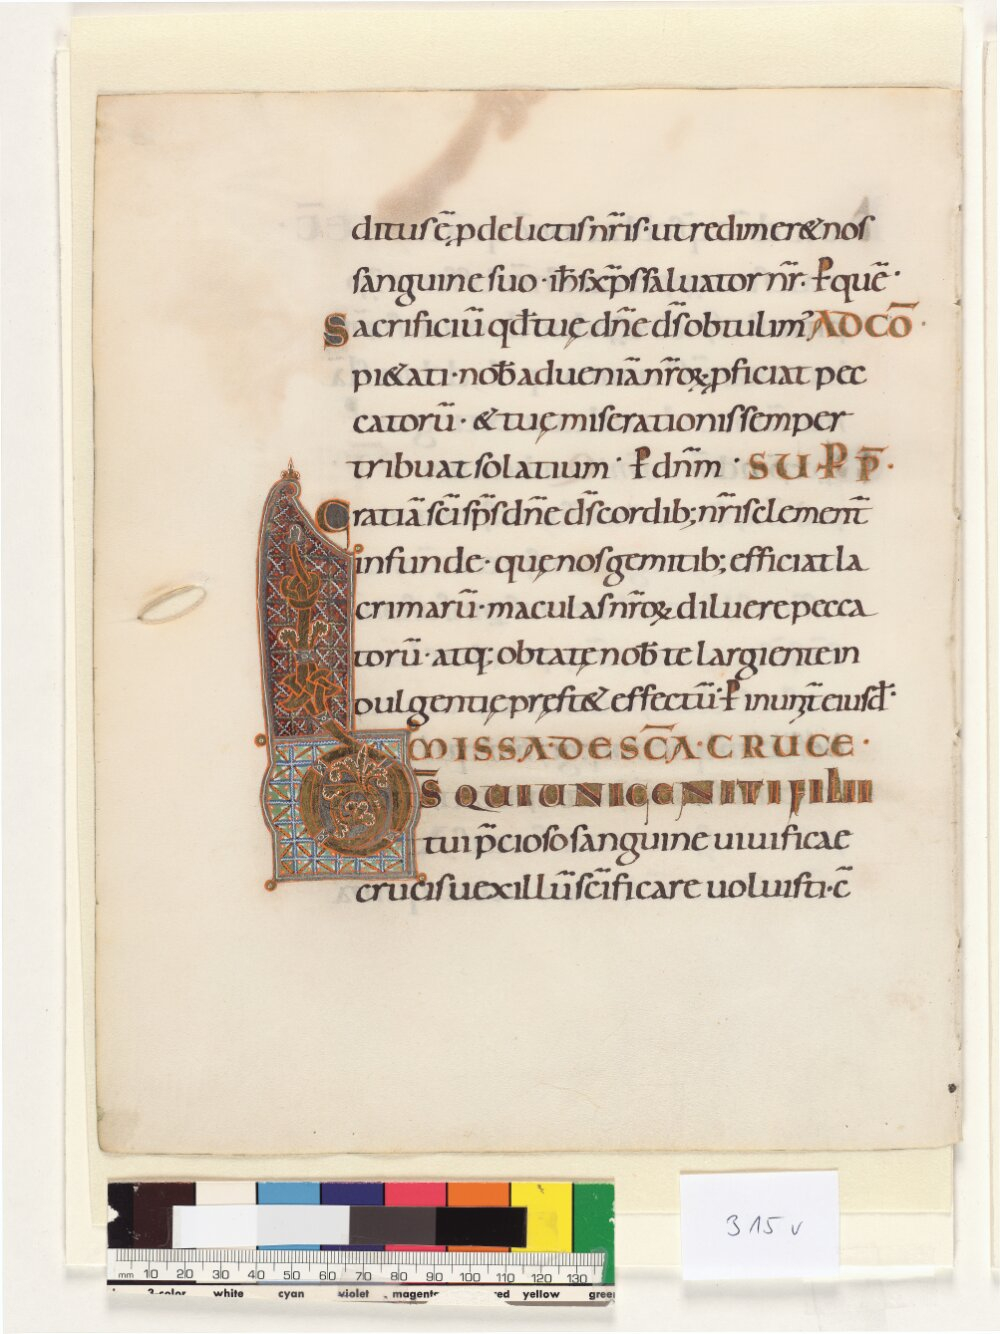 ditus ē, p delictis nr̄is· ut redimer& nos
sanguine suo· ih̄s xp̄s saluator nr̄. P quē·
Sacrificiū qd̄ tuę dn̄e ds̄ obtulim᾽ AD CŌ·
pi&ati· nob̄ ad ueniā nr̄oꝝ pficiat pec
catorū· & tuę miserationis semper
tribuat solatium· P dn̄m· SUP P̄P·
Gratiā sc̄i sp̄s dn̄e ds̄ cordib; nr̄is clement̄
infunde· quę nos gemitib; efficiat la
crimarū· maculas nr̄oꝝ diluere pecca
torū· atq; obtatę nob̄ te largiente in
dulgentię pręst& effectū· P in unit̄ eiusd̄·
MISSA· DE SC̄A· CRUCE·
DS̄ QUI UNIGENITI FILII
tui p̄cioso sanguine uiuificae
crucis uexillū sc̄ificare uoluisti· c̄
315 v
mm 10 20 30 40 50 60 70 80 90 100 110 120 130
3-color white cyan violet magenta red yellow green